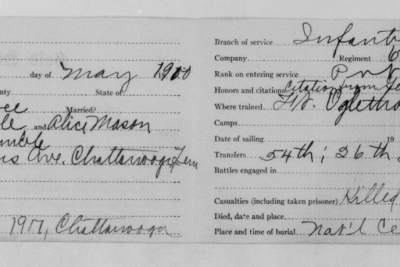 day of May 1900
nty State of
Married?
and Alice Mason
Ave. Chattanooga, Tenn
1917, Chattanooga
Branch of service Infant
Company Regiment 6
Rank on entering service Pvt
Honors and citations Citation from Ge
Where trained Ft. Ogletho
Camps
Date of sailing 19
Transfers 54th; 26th
Battles engaged in
Casualties (including taken prisoner) Killed
Died, date and place
Place and time of burial Nat'l Ce